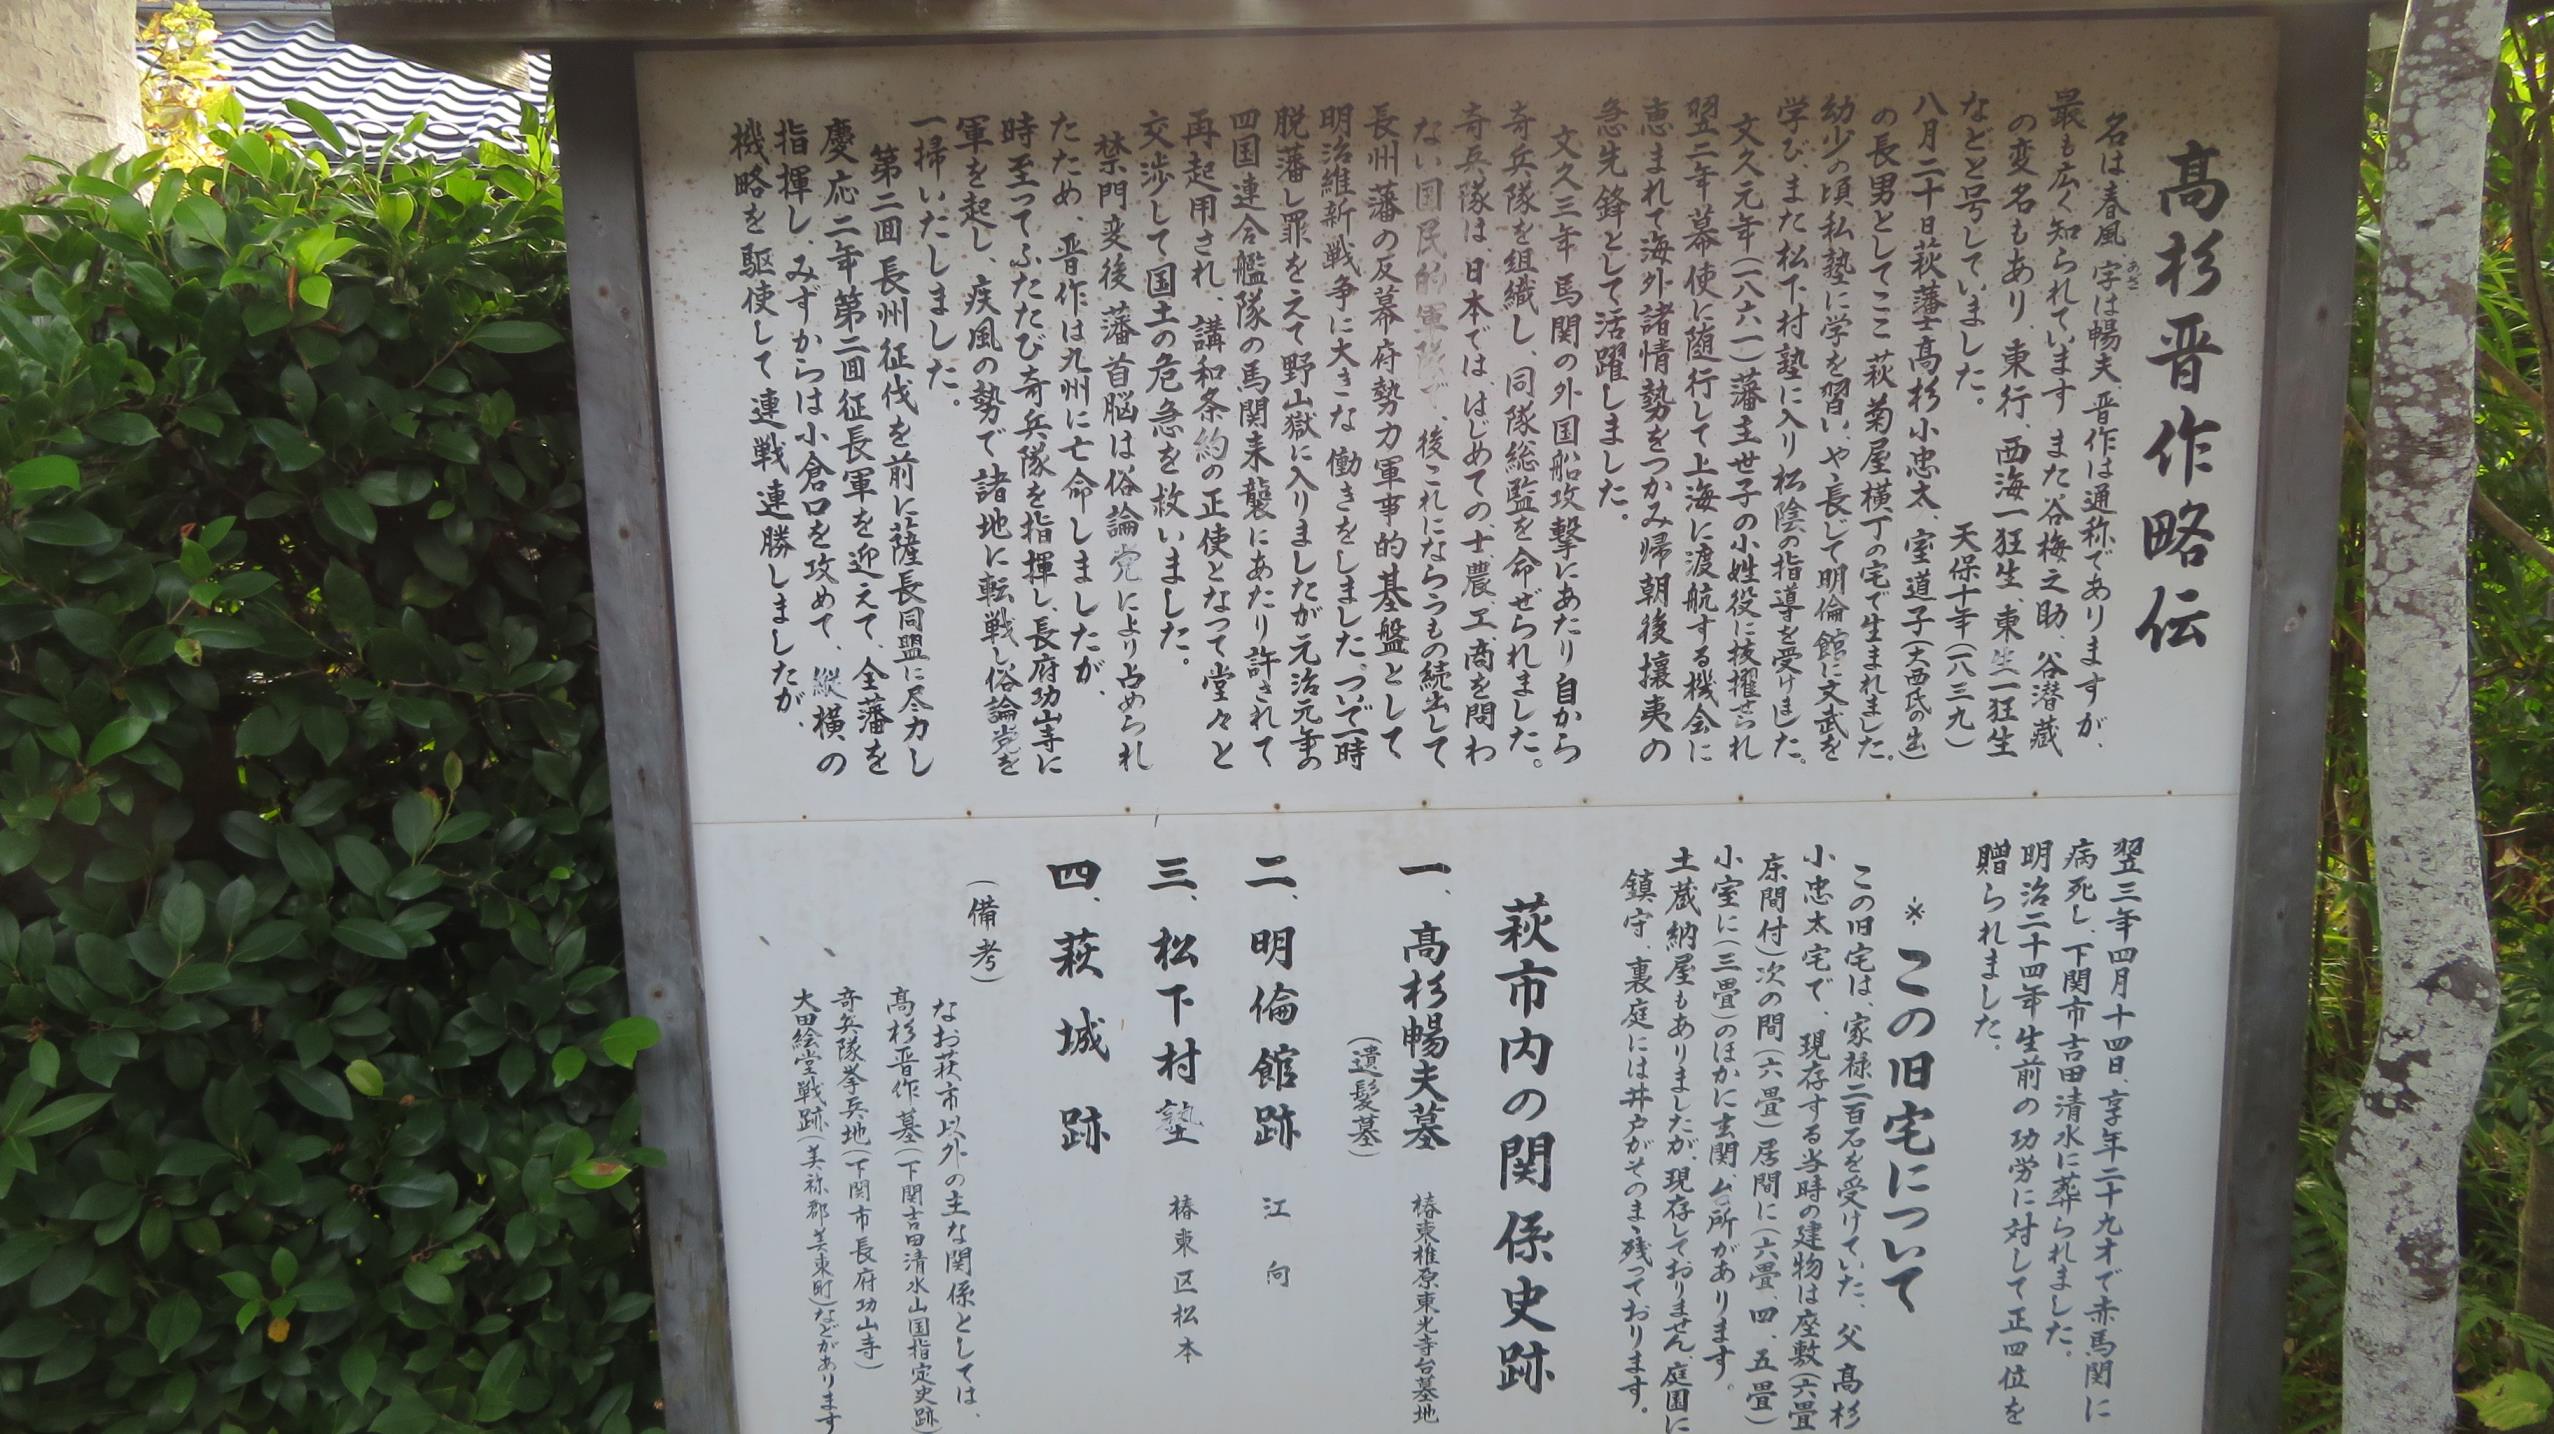 高杉晋作略伝
名は春風、字は暢夫、晋作は通称でありますが、
あざ
最も広く知られています また谷梅之助、谷潜蔵
の変名もあり、東行、西海一狂生、東生一狂生
などと号していました。
天保十年(一八三九)
八月二十日萩藩士高杉小忠太、室道子(大西氏の出)
の長男としてここ 萩菊屋横丁の宅で生まれました。
幼少の頃私塾に学を習い、や長じて明倫館に文武を
学び、また松下村塾に入り松陰の指導を受けました。
文久元年(一八六一)藩主世子の小姓役に抜擢せられ
翌二年幕使に随行して上海に渡航する機会に
恵まれて海外諸情勢をつかみ帰朝後攘夷の
急先鋒として活躍しました。
文久三年 馬関の外国船攻撃にあたり自から
奇兵隊を組織し、同隊総監を命ぜられました。
奇兵隊は、日本では、はじめての、士、農、工、商を問わ
ない国民的軍隊で、後これにならうもの続出して
長州藩の反幕府勢力軍事的基盤として
明治維新戦争に大きな働きをしました。ついで一時
脱藩し罪をえて野山獄に入りましたが元治元年の
四国連合艦隊の馬関来襲にあたり許されて
再起用され、講和条約の正使となって堂々と
交渉して国土の危急を救いました。
禁門変後 藩首脳は俗論党により占められ
たため、晋作は九州に亡命しましたが、
時至ってふたたび奇兵隊を指揮し、長府功山寺に
軍を起し、疾風の勢で諸地に転戦し俗論党を
一掃いたしました。
第二回長州征伐を前に薩長同盟に尽力し
慶応二年第二回征長軍を迎えて、全藩を
指揮し、みずからは小倉口を攻めて、縦横の
機略を駆使して連戦連勝しましたが、
翌三年四月十四日、享年二十九才で赤馬関に
病死し、下関市吉田清水に葬られました。
明治二十四年生前の功労に対して正四位を
贈られました。
※この旧宅について
この旧宅は、家禄二百石を受けていた、父高杉
小忠太宅で、現存する当時の建物は座敷(六畳
床間付)次の間(六畳)居間に(六畳、四、五畳)
小室に(三畳)のほかに玄関、台所があります。
土蔵納屋もありましたが、現存しておりません、庭園に
鎮守、裏庭には井戸がそのまゝ残っております。
萩市内の関係史跡
一、高杉暢夫墓 椿東椎原東光寺台墓地
(遺髪墓)
二、明倫館跡 江向
三、松下村塾 椿東区松本
四、萩城跡
(備考)
なお萩市以外の主な関係としては、
高杉晋作墓(下関吉田清水山国指定史跡)
奇兵隊挙兵地(下関市長府功山寺)
大田絵堂戦跡(美祢郡美東町)などがあります